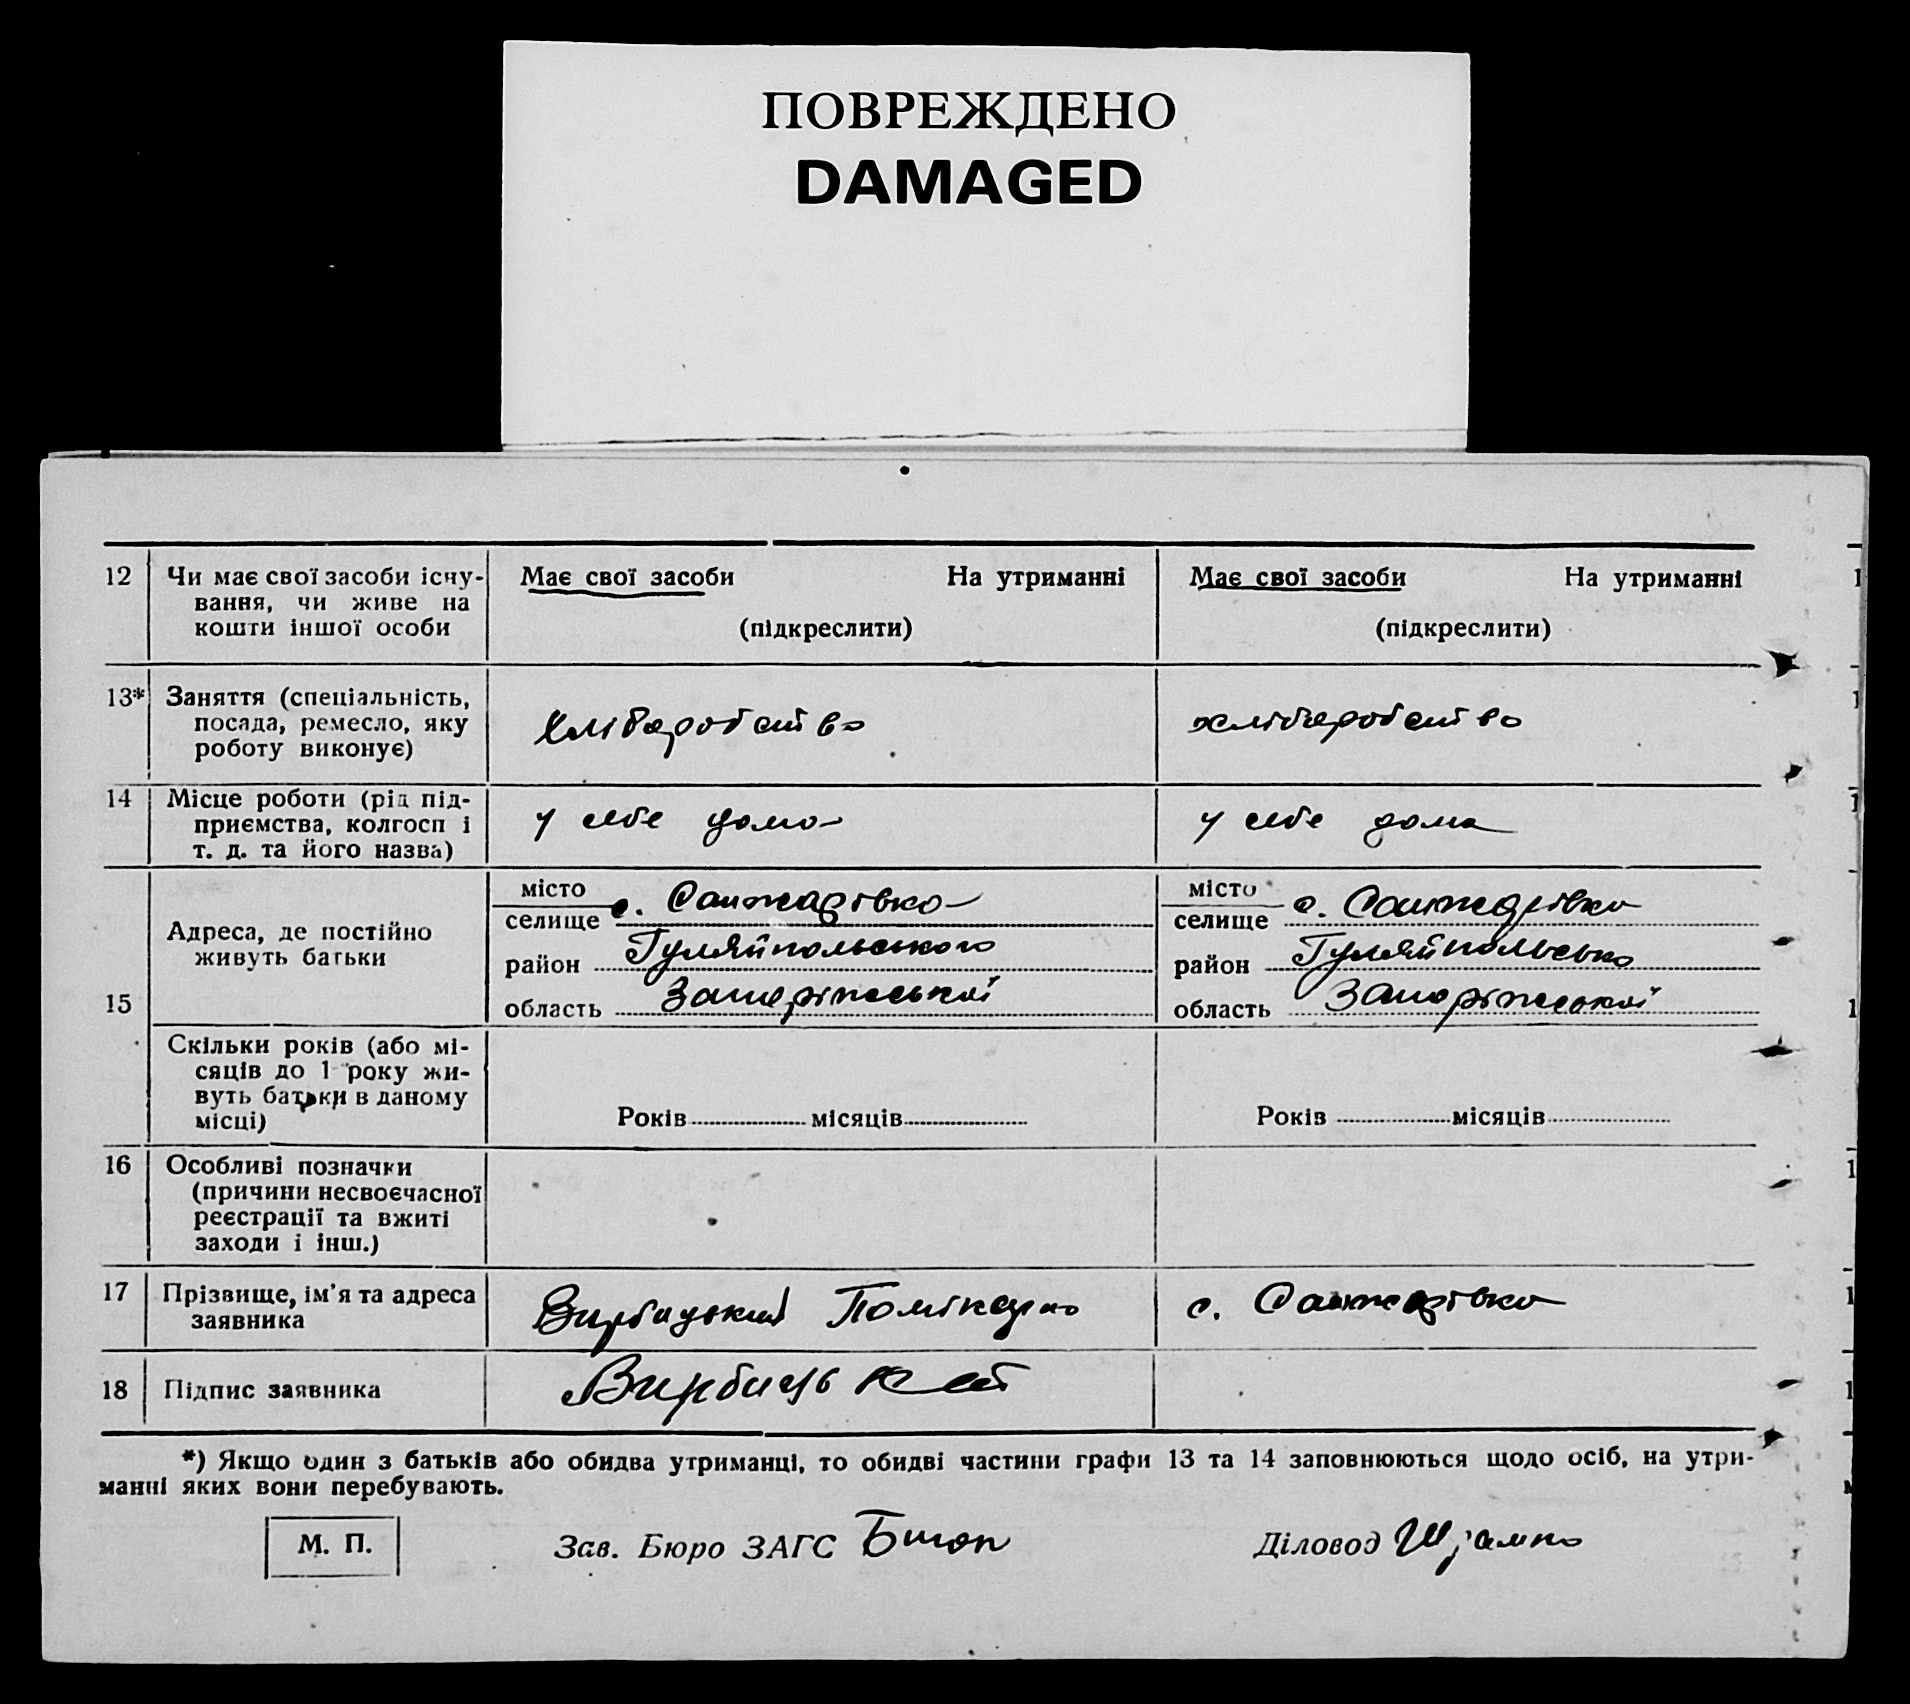 ПОВРЕЖДЕНО
DAMAGED
12 Чи має свої засоби існу-
вання, чи живе на
кошти іншої особи
Має свої засоби На утриманні
(підкреслити)
Має свої засоби На утриманні
(підкреслити)
13* Заняття (спеціальність,
посада, ремесло, яку
роботу виконує)
хліборобство
хліборобство
14 Місце роботи (рід під-
приємства, колгосп і
т. д. та його назва)
у себе дома
у себе дома
15
Адреса, де постійно
живуть батьки
місто
селище с. Санжарівка
район Гуляйпольського
область Запоріжської
місто
селище с. Санжарівка
район Гуляйпольсько
область Запоріжської
Скільки років (або мі-
сяців до 1 року жи-
вуть батьки в даному
місці)
Років місяців
Років місяців
16 Особливі позначки
(причини несвоєчасної
реєстрації та вжиті
заходи і інш.)
17 Прізвище, ім'я та адреса
заявника
Вирбицький
с. Санжарівка
18 Підпис заявника
*) Якщо один з батьків або обидва утриманці, то обидві частини графи 13 та 14 заповнюються щодо осіб, на утри-
манні яких вони перебувають.
М. П.
Зав. Бюро ЗАГС
Діловод